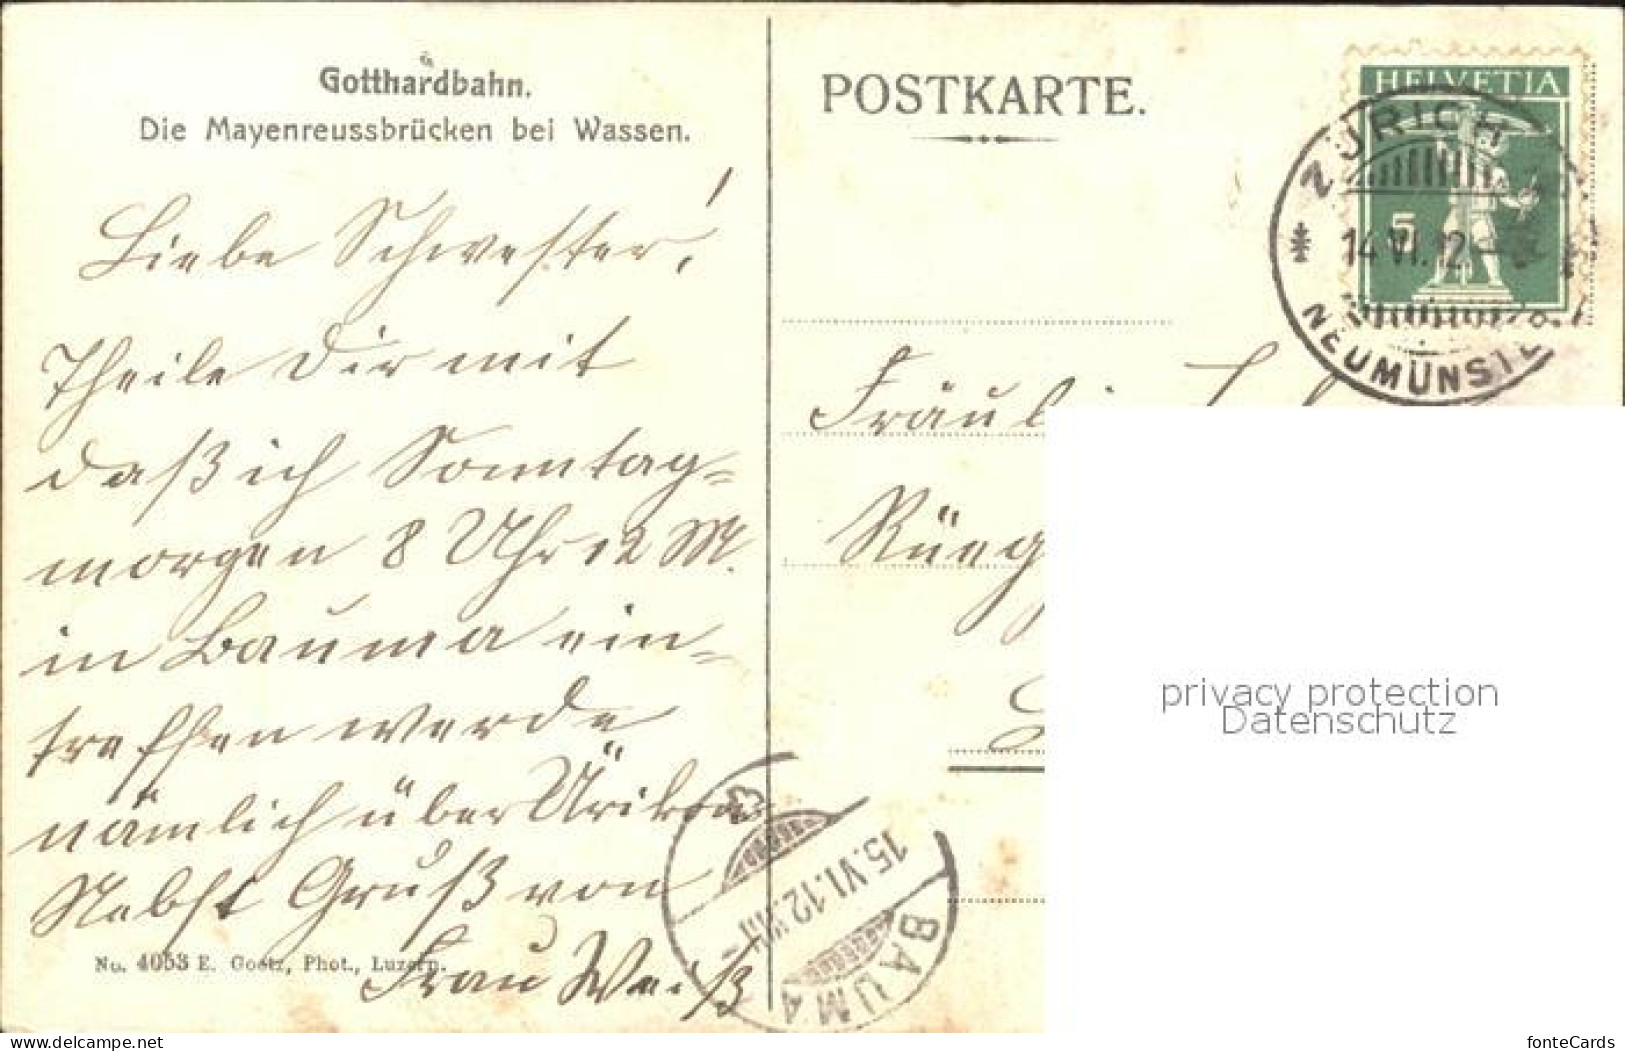 Gotthardbahn.
Die Mayenreussbrücken bei Wassen.
Liebe Schwester!
Theile Dir mit
daß ich Sonntag=
morgen 8 Uhr 12 M.
in Bauma ein=
treffen werde
nämlich über Ürikon
Nebst Gruß von
Frau Weiß
No. 4053 E. Goetz, Phot., Luzern.
POSTKARTE.
HELVETIA
5
ZÜRICH
14 VI. 12
NEUMÜNSTE
Fräul
Rüeg
15. VI. 12. VIII
BAUMA
privacy protection
Datenschutz
www.delcampe.net
fonteCards